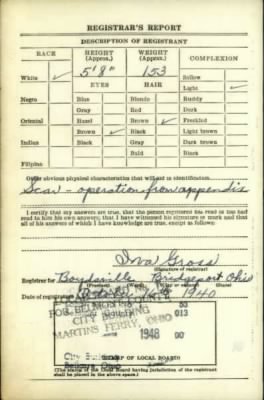 REGISTRAR'S REPORT
DESCRIPTION OF REGISTRANT
RACE HEIGHT (Approx.) WEIGHT (Approx.) COMPLEXION
5' 8" 153
White ✓ Sallow
EYES HAIR Light ✓
Negro Blue Blonde Ruddy
Gray Red Dark
Oriental Hazel Brown ✓ Freckled
Brown ✓ Black Light brown
Indian Black Gray Dark brown
Bald Black
Filipino
Other obvious physical characteristics that will aid in identification
Scar - operation from appendis
I certify that my answers are true; that the person registered has read or has had
read to him his own answers; that I have witnessed his signature or mark and that
all of his answers of which I have knowledge are true, except as follows:
Iva Gross
(Signature of registrar)
Registrar for Bridgeport Ohio
Date of registration October 16 1940
FOR BELMONT
CITY BUILDING 013
MARTINS FERRY, OHIO
1948
City
STAMP OF LOCAL BOARD
(The stamp of the Local Board having jurisdiction of the registrant
shall be placed in the above space.)